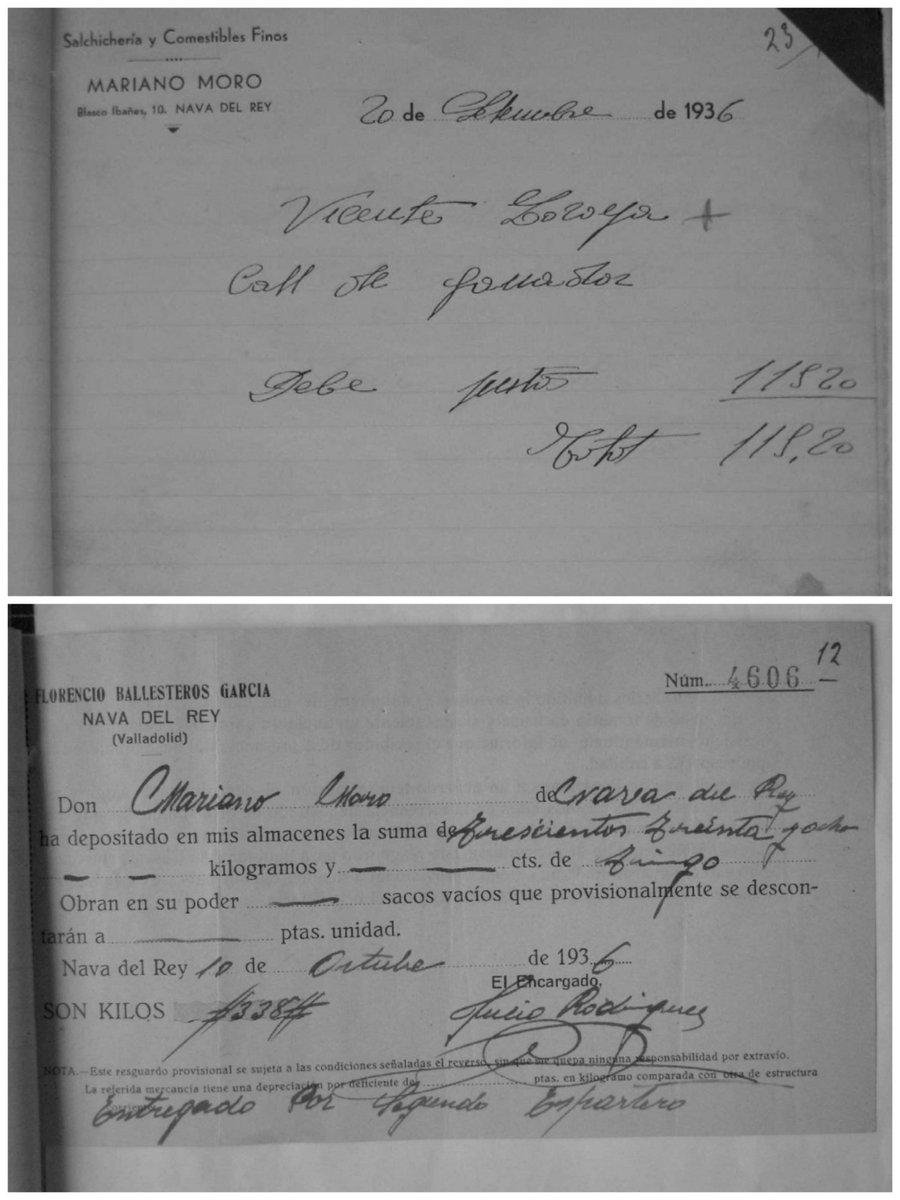 Salchichería y Comestibles Finos
MARIANO MORO
Blasco Ibañes, 10. NAVA DEL REY
23
20 de Setiembre de 1936
Vicente +
Call de ganados
Debe justos 119 20
Total 119,20
12
FLORENCIO BALLESTEROS GARCIA
NAVA DEL REY
(Valladolid)
Núm. 4606
Don Mariano Moro de Nava del Rey
ha depositado en mis almacenes la suma de Trescientos Treinta y ocho
kilogramos y cts. de Trigo
Obran en su poder sacos vacíos que provisionalmente se descon-
tarán a ptas. unidad.
Nava del Rey 10 de Octubre de 1936
El Encargado,
SON KILOS #338# Julio Rodriguez
NOTA.—Este resguardo provisional se sujeta a las condiciones señaladas el reverso, sin que me quepa ninguna responsabilidad por extravío.
La referida mercancia tiene una depreciación por deficiente de ptas. en kilogramo comparada con otra de estructura
Entregado Por Segundo Espartero